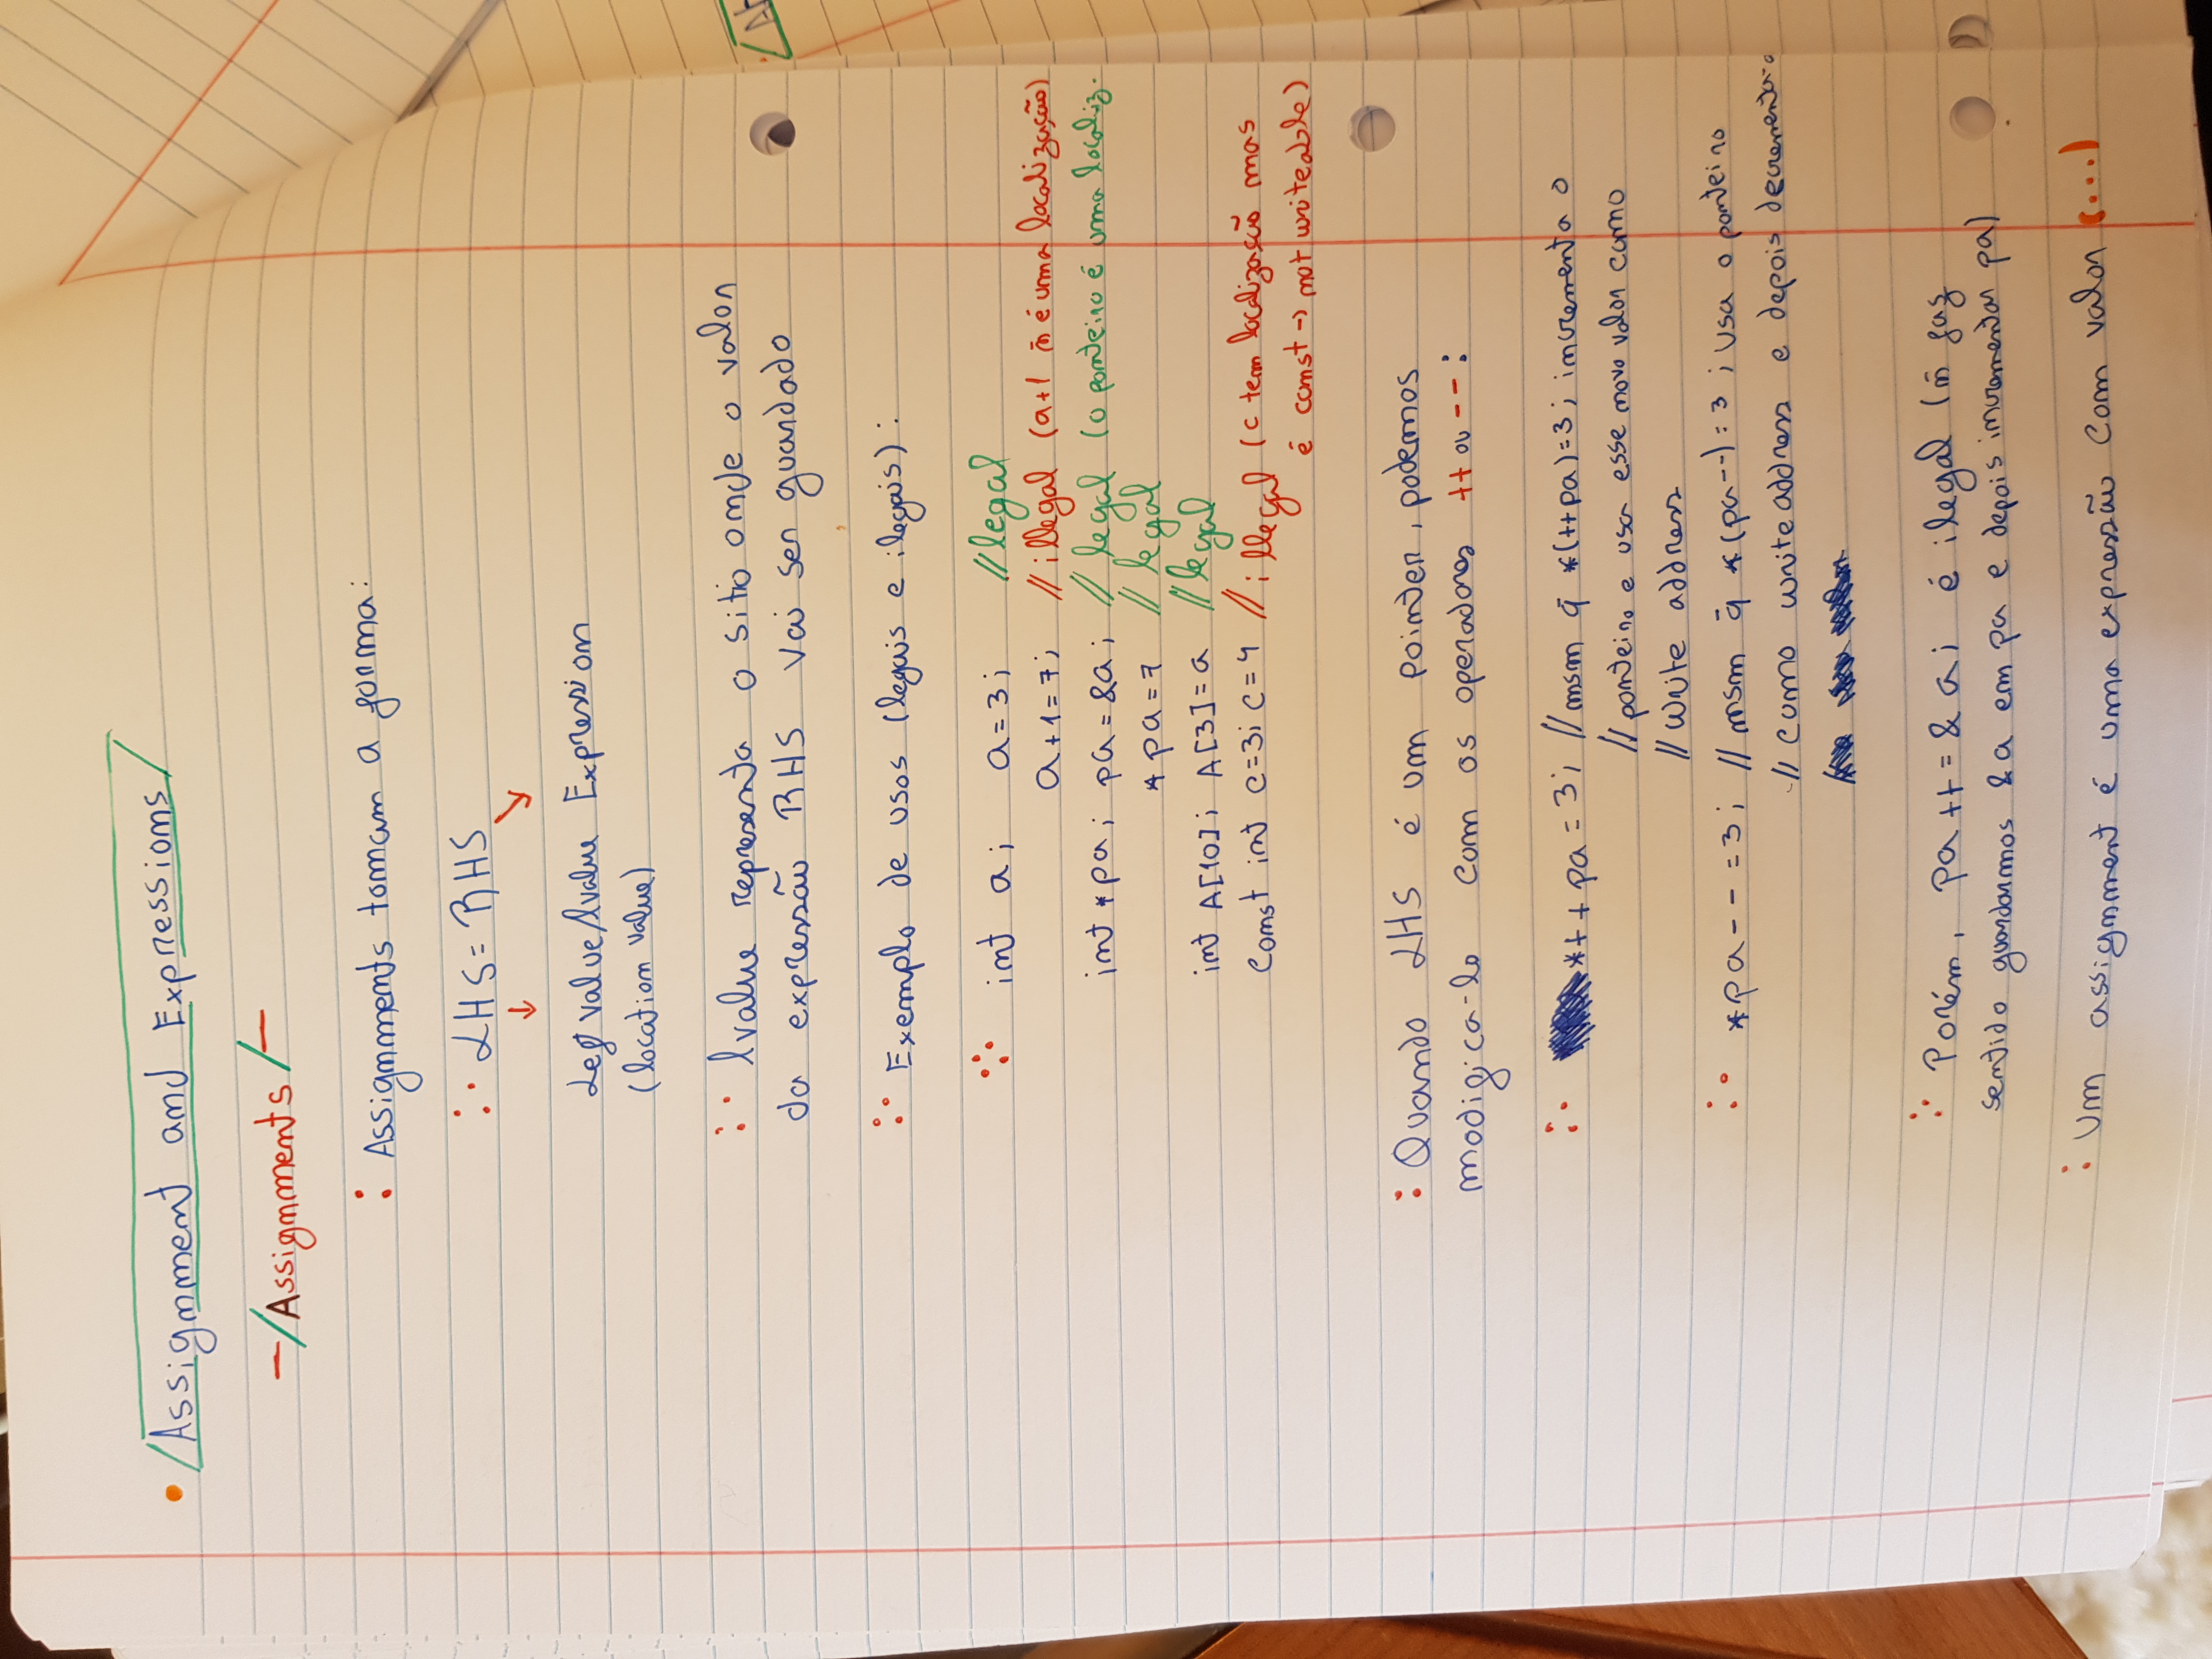 • /Assignment and Expressions/
-/Assignments/-
: Assignments tomam a forma:
∵ LHS = RHS
↓ ↘
Lef value/lvalue Expression
(location value)
∵ lvalue representa o sitio onde o valor
da expressão RHS vai ser guardado
∵ Exemplo de usos (legais e ilegais):
int a; a = 3; // legal
a+1=7; // illegal (a+1 ñ é uma localização)
int *pa; pa = &a; // legal (o ponteiro é uma localiz.
*pa = 7 // legal
int A[10]; A[3] = a // legal
Const int c=3; c=4 // illegal (c tem localização mas
é const -> not writeable)
: Quando LHS é um pointer, podemos
modifica-lo com os operadores ++ ou --:
*++pa = 3; // msm q̃ *(++pa)=3; incrementa o
// ponteiro e usa esse novo valor como
// write address
*pa-- = 3; // msm q̃ *(pa--) = 3; usa o ponteiro
// como write address e depois decrementa-o
Porém, pa++ = &a; é ilegal (ñ faz
sentido guardarmos &a em pa e depois incrementar pa)
: Um assignment é uma expressão com valor (...)